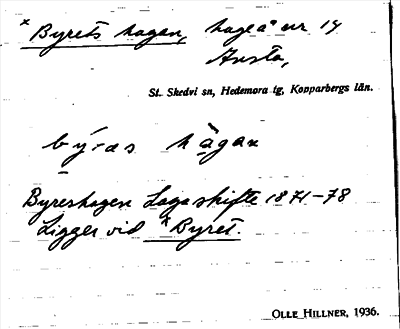 x Byrets hagen, hage å nr 14
Avsta,
St. Skedvi sn, Hedemora tg, Kopparbergs län.
býras hạ̀gan
Byreshagen Laga skifte 1871-78
Ligger vid x Byret.
OLLE HILLNER, 1936.